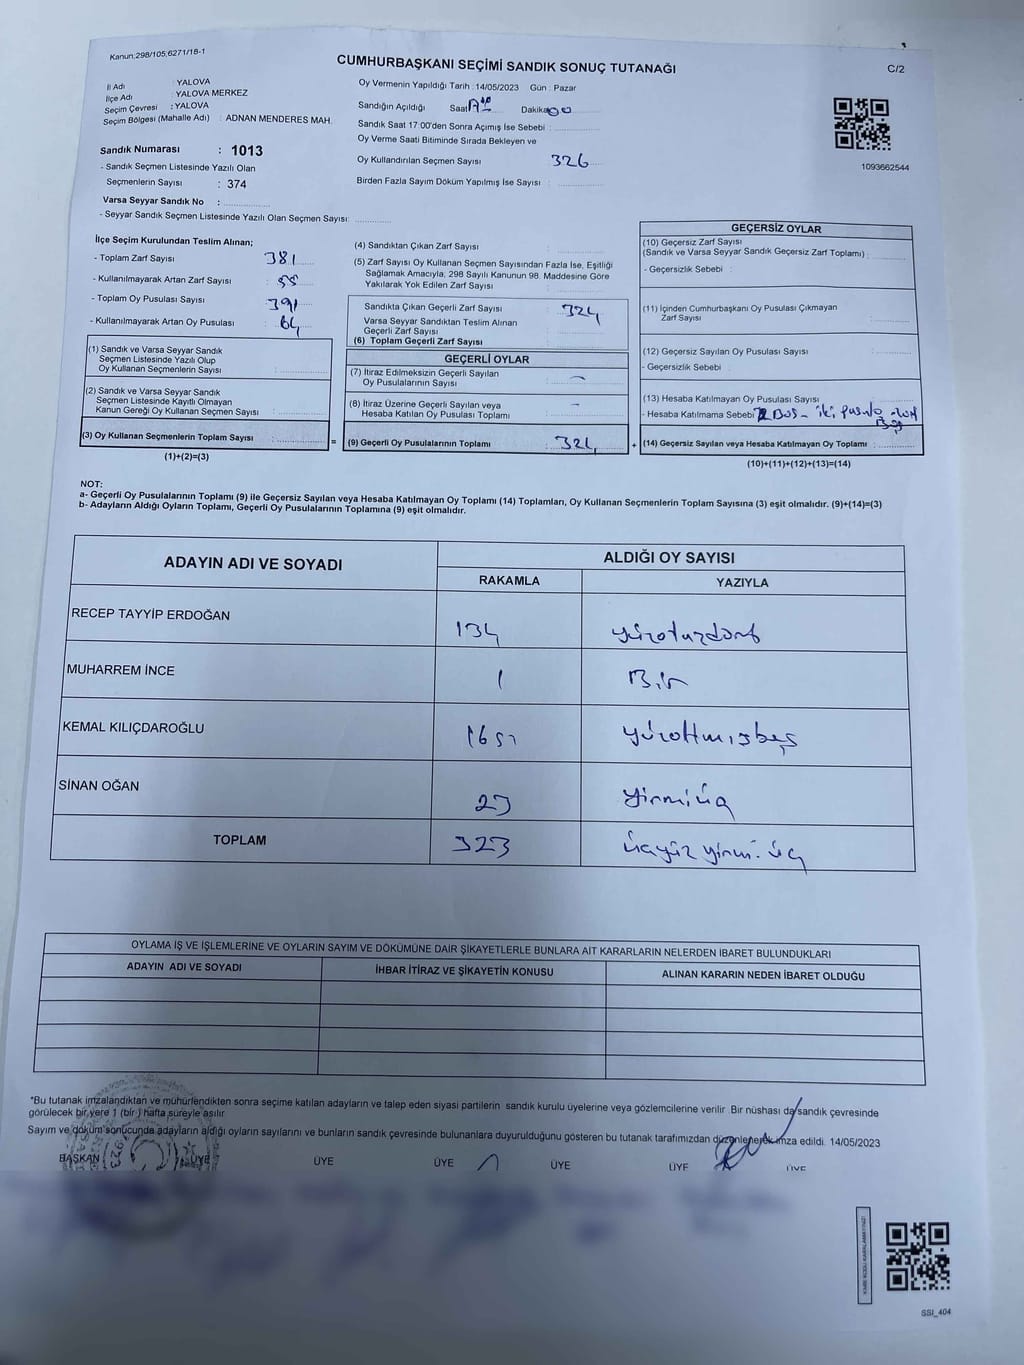 Kanun:298/105;6271/18-1
CUMHURBAŞKANI SEÇİMİ SANDIK SONUÇ TUTANAĞI
C/2
İl Adı : YALOVA
İlçe Adı YALOVA MERKEZ
Seçim Çevresi : YALOVA
Seçim Bölgesi (Mahalle Adı) : ADNAN MENDERES MAH.
Sandık Numarası : 1013
- Sandık Seçmen Listesinde Yazılı Olan
Seçmenlerin Sayısı : 374
Varsa Seyyar Sandık No :
- Seyyar Sandık Seçmen Listesinde Yazılı Olan Seçmen Sayısı:
Oy Vermenin Yapıldığı Tarih : 14/05/2023 Gün : Pazar
Sandığın Açıldığı Saat Dakika 00
Sandık Saat 17:00'den Sonra Açımış İse Sebebi :
Oy Verme Saati Bitiminde Sırada Bekleyen ve
Oy Kullandırılan Seçmen Sayısı 326
Birden Fazla Sayım Döküm Yapılmış İse Sayısı :
1093662544
İlçe Seçim Kurulundan Teslim Alınan;
- Toplam Zarf Sayısı 381
- Kullanılmayarak Artan Zarf Sayısı : 55
- Toplam Oy Pusulası Sayısı : 391
- Kullanılmayarak Artan Oy Pusulası : 64
(1) Sandık ve Varsa Seyyar Sandık
Seçmen Listesinde Yazılı Olup
Oy Kullanan Seçmenlerin Sayısı :
(2) Sandık ve Varsa Seyyar Sandık
Seçmen Listesinde Kayıtlı Olmayan
Kanun Gereği Oy Kullanan Seçmen Sayısı :
(3) Oy Kullanan Seçmenlerin Toplam Sayısı :
(1)+(2)=(3)
=
(4) Sandıktan Çıkan Zarf Sayısı :
(5) Zarf Sayısı Oy Kullanan Seçmen Sayısından Fazla İse, Eşitliği
Sağlamak Amacıyla, 298 Sayılı Kanunun 98. Maddesine Göre
Yakılarak Yok Edilen Zarf Sayısı :
Sandıkta Çıkan Geçerli Zarf Sayısı : 324
Varsa Seyyar Sandıktan Teslim Alınan
Geçerli Zarf Sayısı :
(6) Toplam Geçerli Zarf Sayısı
GEÇERLİ OYLAR
(7) İtiraz Edilmeksizin Geçerli Sayılan
Oy Pusulalarının Sayısı : –
(8) İtiraz Üzerine Geçerli Sayılan veya
Hesaba Katılan Oy Pusulası Toplamı : –
(9) Geçerli Oy Pusulalarının Toplamı : 324
+
GEÇERSİZ OYLAR
(10) Geçersiz Zarf Sayısı
(Sandık ve Varsa Seyyar Sandık Geçersiz Zarf Toplamı) :
- Geçersizlik Sebebi :
(11) İçinden Cumhurbaşkanı Oy Pusulası Çıkmayan
Zarf Sayısı :
(12) Geçersiz Sayılan Oy Pusulası Sayısı :
- Geçersizlik Sebebi :
(13) Hesaba Katılmayan Oy Pusulası Sayısı :
- Hesaba Katılmama Sebebi Boş - iki pusula
(14) Geçersiz Sayılan veya Hesaba Katılmayan Oy Toplamı :
(10)+(11)+(12)+(13)=(14)
NOT:
a- Geçerli Oy Pusulalarının Toplamı (9) ile Geçersiz Sayılan veya Hesaba Katılmayan Oy Toplamı (14) Toplamları, Oy Kullanan Seçmenlerin Toplam Sayısına (3) eşit olmalıdır. (9)+(14)=(3)
b- Adayların Aldığı Oyların Toplamı, Geçerli Oy Pusulalarının Toplamına (9) eşit olmalıdır.
ADAYIN ADI VE SOYADI
ALDIĞI OY SAYISI
RAKAMLA YAZIYLA
RECEP TAYYİP ERDOĞAN 134 yüzotuzdört
MUHARREM İNCE 1 Bir
KEMAL KILIÇDAROĞLU 165 yüzaltmışbeş
SİNAN OĞAN 23 yirmiüç
TOPLAM 323 üçyüz yirmi üç
OYLAMA İŞ VE İŞLEMLERİNE VE OYLARIN SAYIM VE DÖKÜMÜNE DAİR ŞİKAYETLERLE BUNLARA AİT KARARLARIN NELERDEN İBARET BULUNDUKLARI
ADAYIN ADI VE SOYADI İHBAR İTİRAZ VE ŞİKAYETİN KONUSU ALINAN KARARIN NEDEN İBARET OLDUĞU
*Bu tutanak imzalandıktan ve mühürlendikten sonra seçime katılan adayların ve talep eden siyasi partilerin sandık kurulu üyelerine veya gözlemcilerine verilir. Bir nüshası da sandık çevresinde
görülecek bir yere 1 (bir) hafta süreyle asılır.
Sayım ve döküm sonucunda adayların aldığı oyların sayılarını ve bunların sandık çevresinde bulunanlara duyurulduğunu gösteren bu tutanak tarafımızdan düzenlenerek imza edildi. 14/05/2023
BAŞKAN ÜYE ÜYE ÜYE ÜYE ÜYE ÜYE
SSI_404